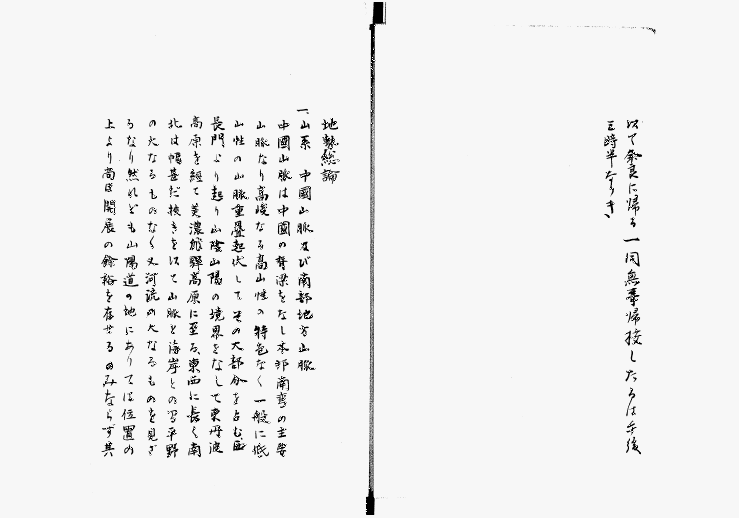 以て奈良に帰る一同無事帰校したるは午後
三時半なりき
地勢総論
一、山系 中國山脈及び南部地方山脈
中國山脈は中國の脊梁をなし本邦南弯の主要
山脈なり高峻なる高山性の特色なく一般に低
山性の山脈重疊起伏してその大部分を占む
長門より起り山陰山陽の境界をなして東丹波
高原を経て美濃飛驒高原に至る、東西に長く南
北は幅甚だ狭きを以て山脈と海岸との間平野
の大なるものなく又河流の大なるものを見ざ
るなり然れども山陽道の地にありては位置の
上より尚ほ開展の餘裕を存せるのみならず其